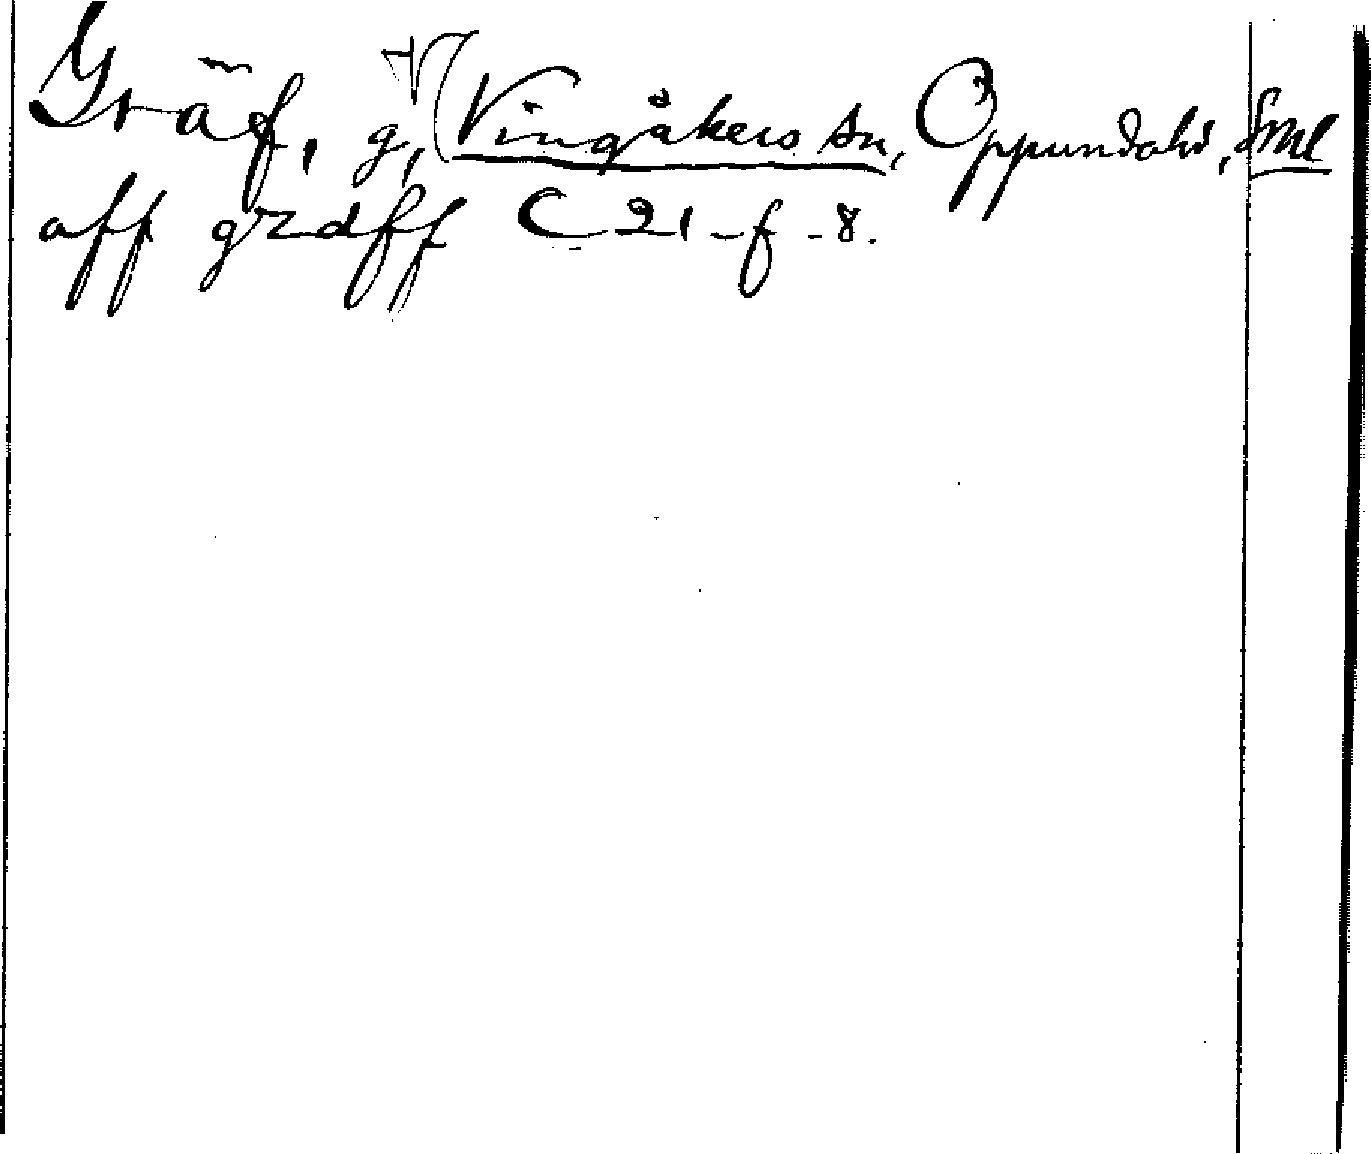 Gräf, g, V Vingåkers sn, Oppunda hd, Sml
aff grdff C 21 - f - 8.